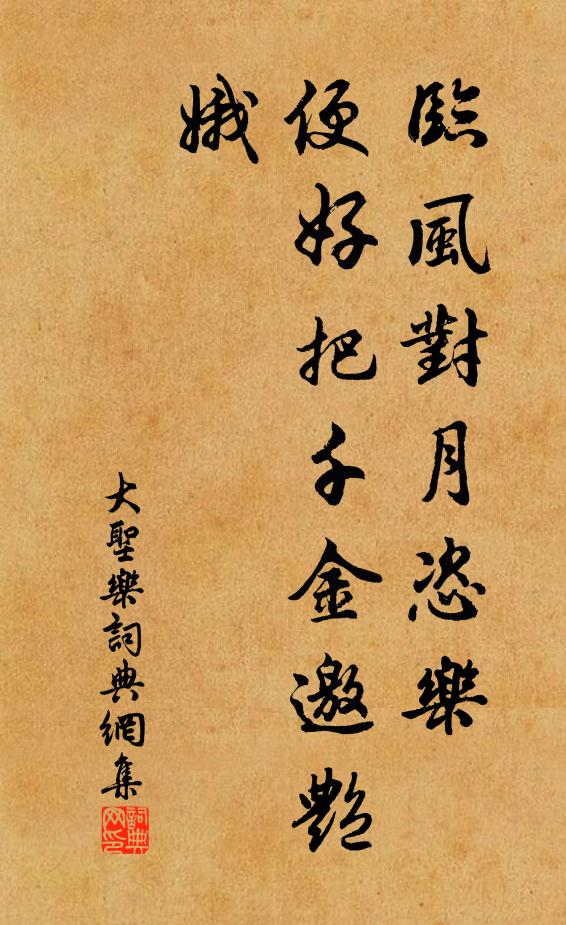 臨風對月恣樂
便好把千金邀艷
娥
大聖樂詞典網集
詞典
网印